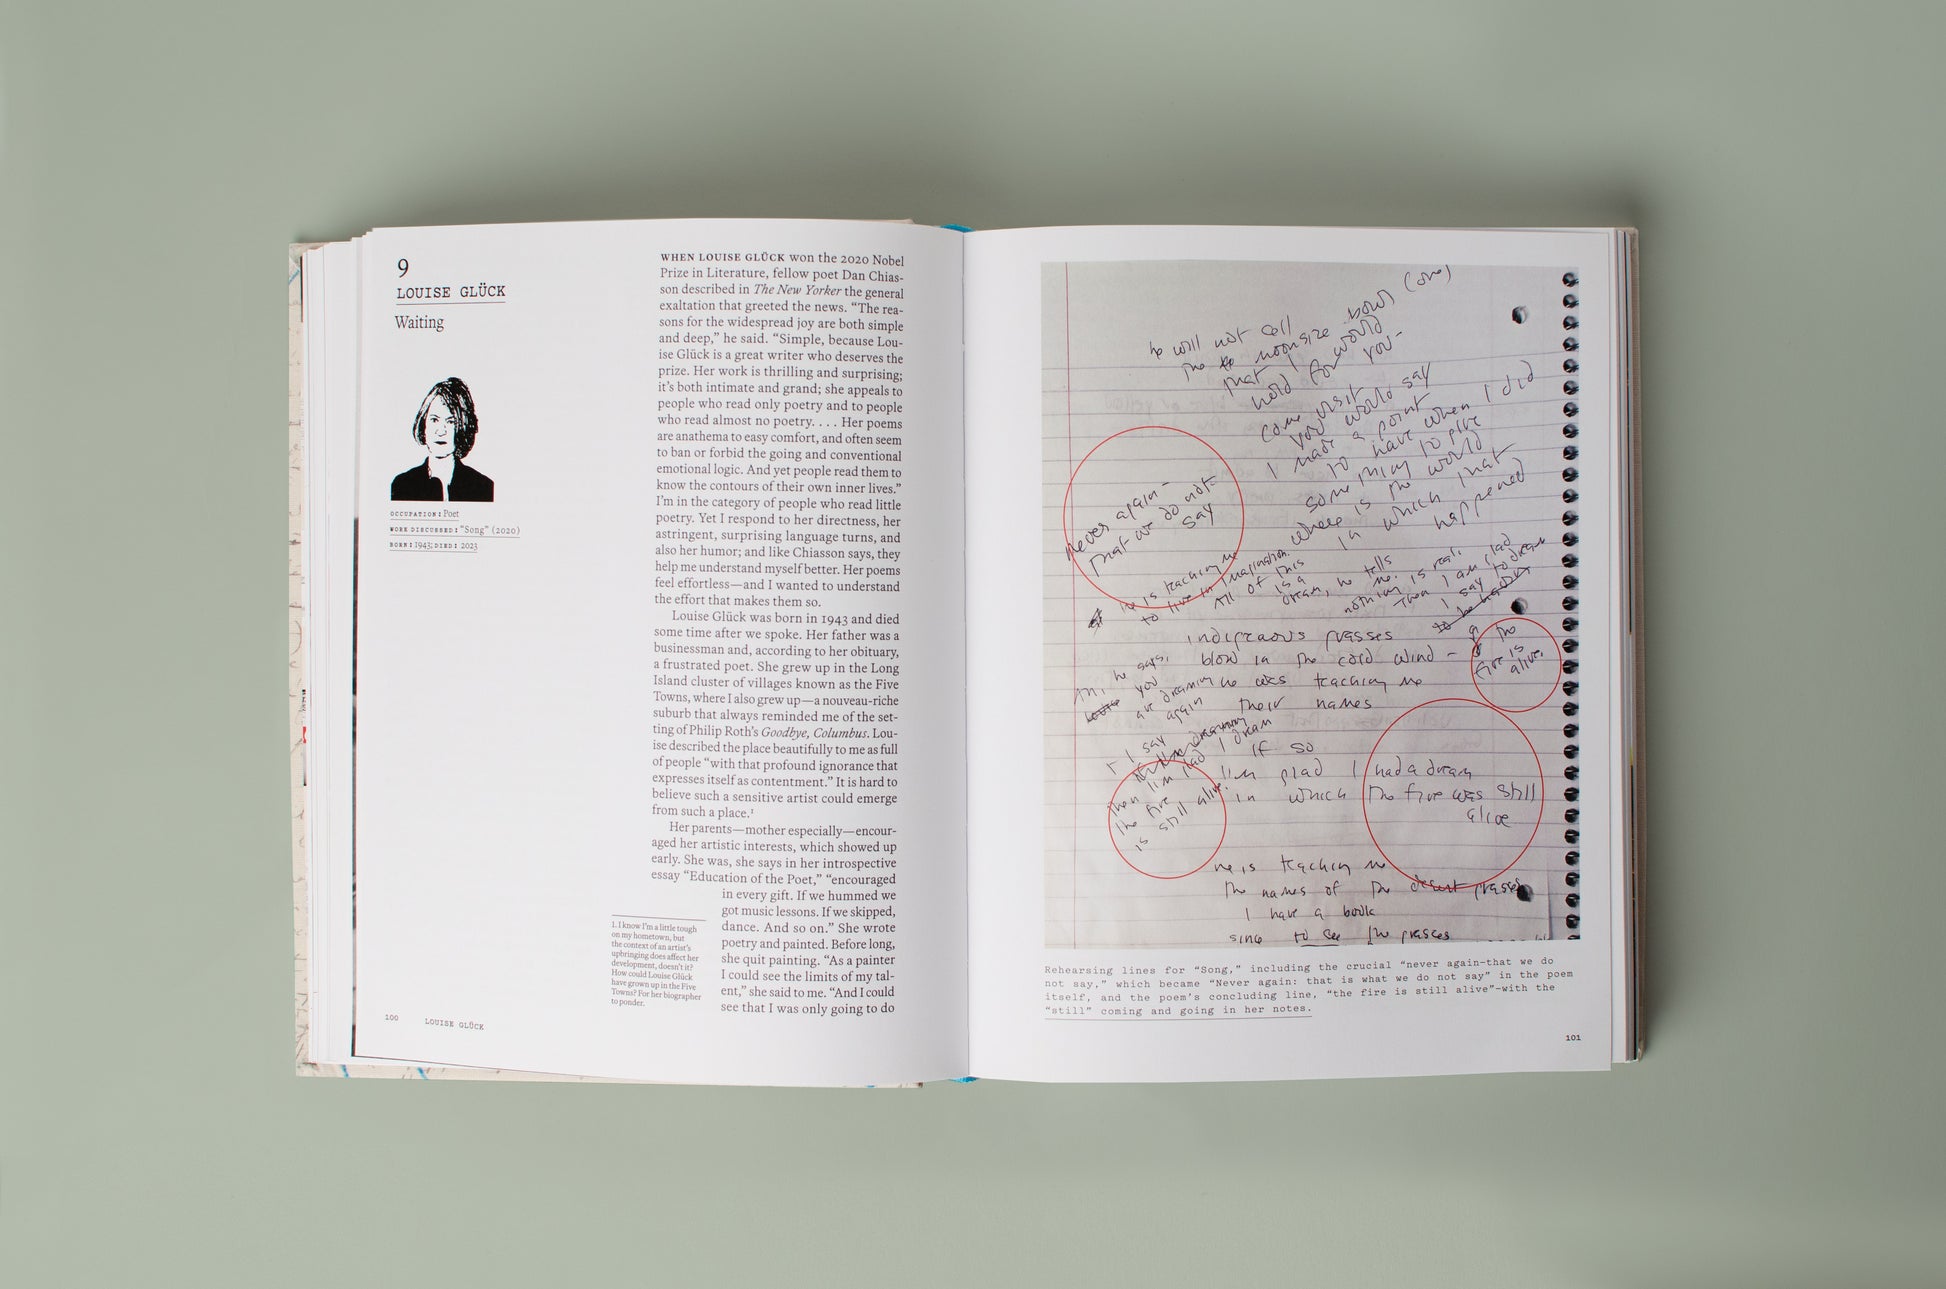 9
LOUISE GLÜCK
Waiting
OCCUPATION: Poet
WORK DISCUSSED: “Song” (2020)
BORN: 1943; DIED: 2023
WHEN LOUISE GLÜCK won the 2020 Nobel
Prize in Literature, fellow poet Dan Chias-
son described in The New Yorker the general
exaltation that greeted the news. “The rea-
sons for the widespread joy are both simple
and deep,” he said. “Simple, because Lou-
ise Glück is a great writer who deserves the
prize. Her work is thrilling and surprising;
it’s both intimate and grand; she appeals to
people who read only poetry and to people
who read almost no poetry. . . . Her poems
are anathema to easy comfort, and often seem
to ban or forbid the going and conventional
emotional logic. And yet people read them to
know the contours of their own inner lives.”
I’m in the category of people who read little
poetry. Yet I respond to her directness, her
astringent, surprising language turns, and
also her humor; and like Chiasson says, they
help me understand myself better. Her poems
feel effortless—and I wanted to understand
the effort that makes them so.
Louise Glück was born in 1943 and died
some time after we spoke. Her father was a
businessman and, according to her obituary,
a frustrated poet. She grew up in the Long
Island cluster of villages known as the Five
Towns, where I also grew up—a nouveau-riche
suburb that always reminded me of the set-
ting of Philip Roth’s Goodbye, Columbus. Lou-
ise described the place beautifully to me as full
of people “with that profound ignorance that
expresses itself as contentment.” It is hard to
believe such a sensitive artist could emerge
from such a place.¹
Her parents—mother especially—encour-
aged her artistic interests, which showed up
early. She was, she says in her introspective
essay “Education of the Poet,” “encouraged
in every gift. If we hummed we
got music lessons. If we skipped,
dance. And so on.” She wrote
poetry and painted. Before long,
she quit painting. “As a painter
I could see the limits of my tal-
ent,” she said to me. “And I could
see that I was only going to do
1. I know I’m a little tough
on my hometown, but
the context of an artist’s
upbringing does affect her
development, doesn’t it?
How could Louise Glück
have grown up in the Five
Towns? For her biographer
to ponder.
100 LOUISE GLÜCK
he will not sell
the moonsize bowl (one)
that I would
hold for you -
come visit
you would say
I made a point
to have when I did
something to give
where is the world
in which that
happened
never again -
that we do not
say
he is teaching me
to live in imagination.
All of this
is a
dream, he tells
me.
nothing is real.
Then I am glad
I say to dream
indigenous grasses
blow in the cold wind -
he was teaching me
their names
the
fire is
alive.
Ah, he says,
you
are dreaming
again
I say
then I'm glad I dream
the fire
is still alive.
If so
I'm glad I had a dream
in which the fire was still
alive
he is teaching me
the names of the desert grasses
I have a book
since to see the grasses
Rehearsing lines for “Song,” including the crucial “never again—that we do
not say,” which became “Never again: that is what we do not say” in the poem
itself, and the poem’s concluding line, “the fire is still alive”—with the
“still” coming and going in her notes.
101